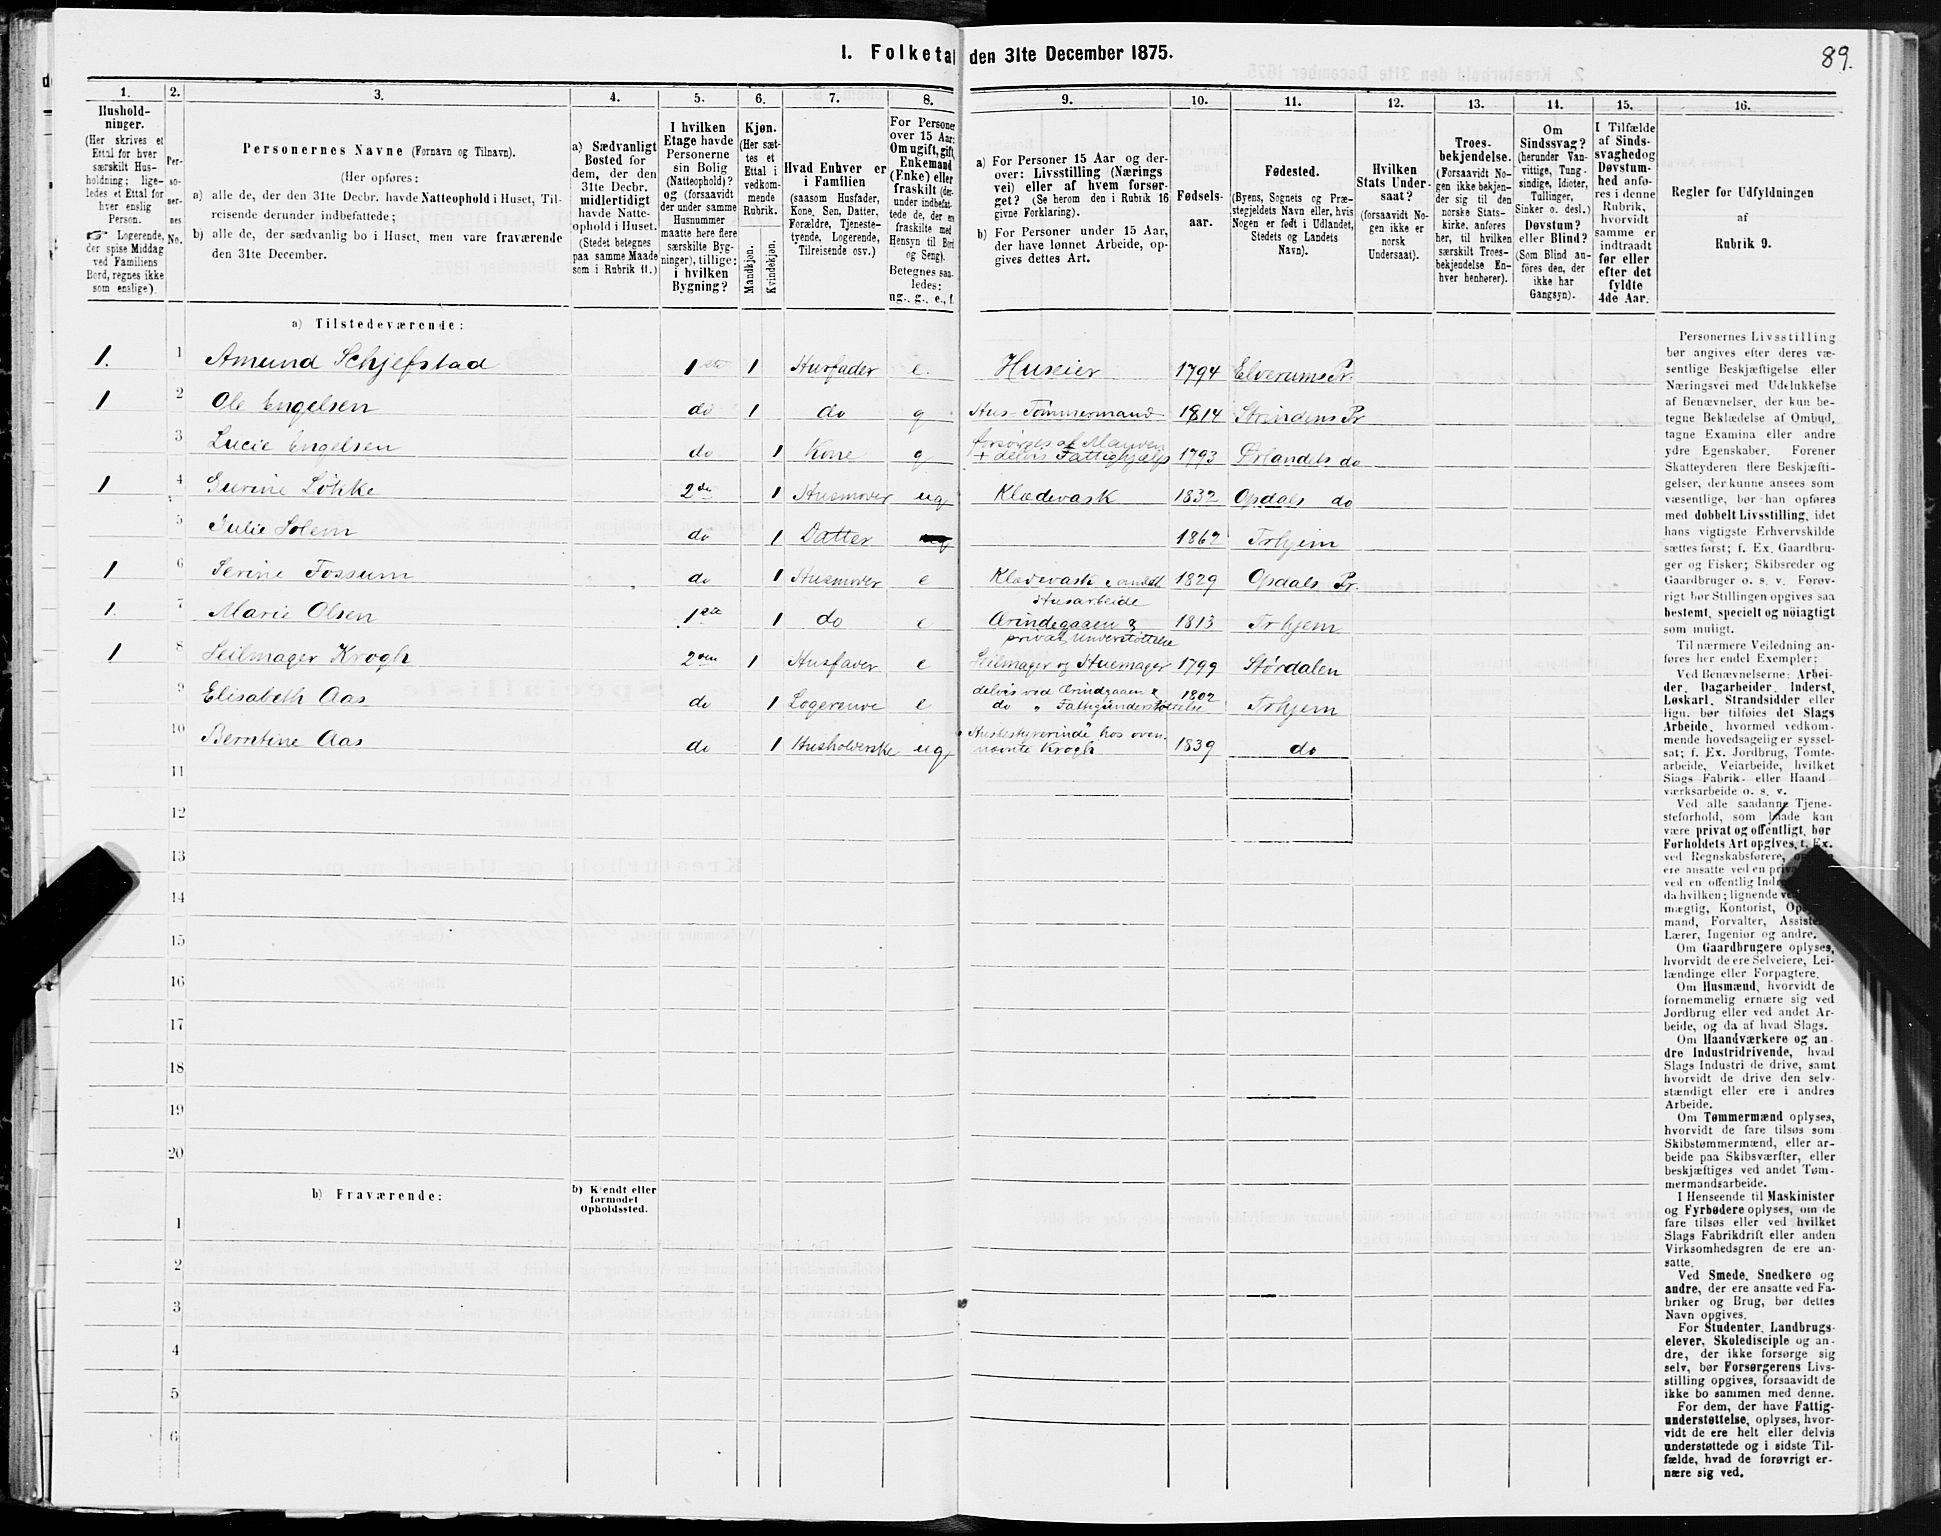 I. Folketal den 31te December 1875.
89.
1. 2. 3. 4. 5. 6. 7. 8. 9. 10. 11. 12. 13. 14. 15. 16.
Hushold-
ninger.
(Her skrives et
Ettal for hver
særskilt Hus-
holdning; lige-
ledes et Ettal for
hver enslig
Person.
☞ Logerende,
der spise Middag
ved Familiens
Bord, regnes ikke
som enslige).
Per-
so-
ner-
nes
No.
Personernes Navne (Fornavn og Tilnavn).
(Her opføres:
a) alle de, der den 31te Decbr. havde Natteophold i Huset, Til-
reisende derunder indbefattede;
b) alle de, der sædvanlig bo i Huset, men vare fraværende
den 31te December.
a) Sædvanligt
Bosted for
dem, der den
31te Decbr.
midlertidigt
havde Natte-
ophold i Huset.
(Stedet betegnes
paa samme Maade
som i Rubrik 11.)
I hvilken
Etage havde
Personerne
sin Bolig
(Natteophold)?
og (forsaavidt
der under samme
Husnummer
maatte here flere
særskilte Byg-
ninger), tillige:
i hvilken
Bygning?
Kjøn.
(Her sæt-
tes et
Ettal i
vedkom-
mende
Rubrik.
Mandkjøn.
Kvindekjøn.
Hvad Enhver er
i Familien
(saasom Husfader,
Kone, Søn, Datter,
Forældre, Tjeneste-
tyende, Logerende,
Tilreisende osv.)
For Personer
over 15 Aar:
Om ugift, gift,
Enkemand
(Enke) eller
fraskilt (der-
under indbefat-
tede de, der ere
fraskilte med
Hensyn til Bord
og Seng).
Betegnes saa-
ledes:
ug., g., e., f.
a) For Personer 15 Aar og der-
over: Livsstilling (Nærings
vei) eller af hvem forsør-
get? (Se herom den i Rubrik 16
givne Forklaring).
b) For Personer under 15 Aar,
der have lønnet Arbeide, op-
gives dettes Art.
Fødsels-
aar.
Fødested.
(Byens, Sognets og Præ-
stegjeldets Navn eller, hvis
Nogen er født i Udlandet,
Stedets og Landets
Navn).
Hvilken
Stats Under-
saat?
(forsaavidt No-
gen ikke er
norsk
Undersaat).
Troes-
bekjendelse.
(Forsaavidt No-
gen ikke bekjen-
der sig til den
norske Stats-
kirke, anføres
her, til hvilken
særskilt Troes-
bekjendelse En-
hver henhører).
Om
Sindssvag?
(herunder Van-
vittige, Tung-
sindige, Idioter,
Tullinger,
Sinker o. desl.)
Døvstum?
eller Blind?
(Som Blind an-
føres den, der
ikke har
Gangsyn).
I Tilfælde
af Sinds-
svaghed og
Døvstum-
hed anfø-
res i denne
Rubrik,
hvorvidt
samme er
indtraadt
før eller
efter det
fyldte
4de Aar.
Regler for Udfyldningen
af
Rubrik 9.
a) Tilstedeværende:
1. 1 Amund Schjefstad 1ste 1 Husfader e. Huseier 1794 Elverums Pr.
1 2 Ole Engelsen do 1 do g Hus-Tømmermand 1814 Strindens Pr
3 Lucie Engelsen do 1 Kone g forsørges af Manden + delvis Fattighjælp 1793 Ørlandets do
1 4 Gurine Løkke 2de 1 Husmoder ug Klædevask 1832 Opdals do
5 Julie Solem do 1 Datter 1862 Trhjem
1 6 Serine Fossum do 1 Husmoder e Klædevask & andet Husarbeide 1829 Opdals Pr.
1. 7 Marie Olsen 1ste 1 do e Ærindegaaen & privat Understøttelse 1813 Trhjem
1 8 Seilmager Krogh 2den 1 Husfader e Seilmager og Huemager 1799 Størdalen
9 Elisabeth Aas do 1 Logerende e delvis ved Ærindgaaen & do " Fattigunderstøttelse 1802 Trhjem
10 Berntine Aas do 1 Husholderske ug "Husbestyrerinde" hos oven-nævnte Krogh 1839 do
11
12
13
14
15
16
17
18
19
20
b) Fraværende:
b) Kjendt eller
formodet
Opholdssted.
1
2
3
4
5
6
Personernes Livsstilling
bør angives efter deres væ-
sentlige Beskjæftigelse eller
Næringsvei med Udelukkelse
af Benævnelser, der kun be-
tegne Beklædelse af Ombud,
tagne Examina eller andre
ydre Egenskaber. Forener
Skatteyderen flere Beskjæfti-
gelser, der kunne ansees som
væsentlige, bør han opføres
med dobbelt Livsstilling, idet
hans vigtigste Erhvervskilde
sættes først; f. Ex. Gaardbru-
ger og Fisker; Skibsreder og
Gaardbruger o. s. v. Forøv-
rigt bør Stillingen opgives saa
bestemt, specielt og nøiagtigt
som muligt.
Til nærmere Veiledning an-
føres her endel Exempler:
Ved Benævnelserne: Arbei-
der, Dagarbeider, Inderst,
Løskarl, Strandsidder eller
lign. bør tilføies det Slags
Arbeide, hvormed vedkom-
mende hovedsagelig er syssel-
sat; f. Ex. Jordbrug, Tomte-
arbeide, Veiarbeide, hvilket
Slags Fabrik- eller Haand
værksarbeide o. s. v.
Ved alle saadanne Tjene-
steforhold, som baade kan
være privat og offentligt, bør
Forholdets Art opgives, t. Ex.
ved Regnskabsførere,
ere ansatte ved en
ved en offentlig
da hvilken; lignende
mægtig, Kontorist,
mand, Forvalter,
Lærer, Ingeniør og andre.
Om Gaardbrugere oplyses,
hvorvidt de ere Selveiere, Lei-
lændinge eller Forpagtere.
Om Husmænd, hvorvidt de
fornemmelig ernære sig ved
Jordbrug eller ved andet Ar-
beide, og da af hvad Slags.
Om Haandværkere og an-
dre Industridrivende, hvad
Slags Industri de drive, samt
hvorvidt de drive den selv-
stændigt eller ere i andres
Arbeide.
Om Tømmermænd oplyses,
hvorvidt de fare tilsøs som
Skibstømmermænd, eller ar-
beide paa Skibsværfter, eller
beskjæftiges ved andet Tøm-
mermandsarbeide.
I Henseende til Maskinister
og Fyrbødere oplyses, om de
fare tilsøs eller ved hvilket
Slags Fabrikdrift eller anden
Virksomhedsgren de ere an-
satte.
Ved Smede, Snedkere og
andre, der ere ansatte ved Fa-
briker og Brug, bør dettes
Navn opgives.
For Studenter, Landbrugs-
elever, Skoledisciple og an-
dre, der ikke forsørge sig
selv, bør Forsørgerens Livs-
stilling opgives, forsaavidt de
ikke bo sammen med denne.
For dem, der have Fattig-
understøttelse, oplyses, hvor-
vidt de ere helt eller delvis
understøttede og i sidste Til-
fælde, hvad de forøvrigt er-
nære sig ved.